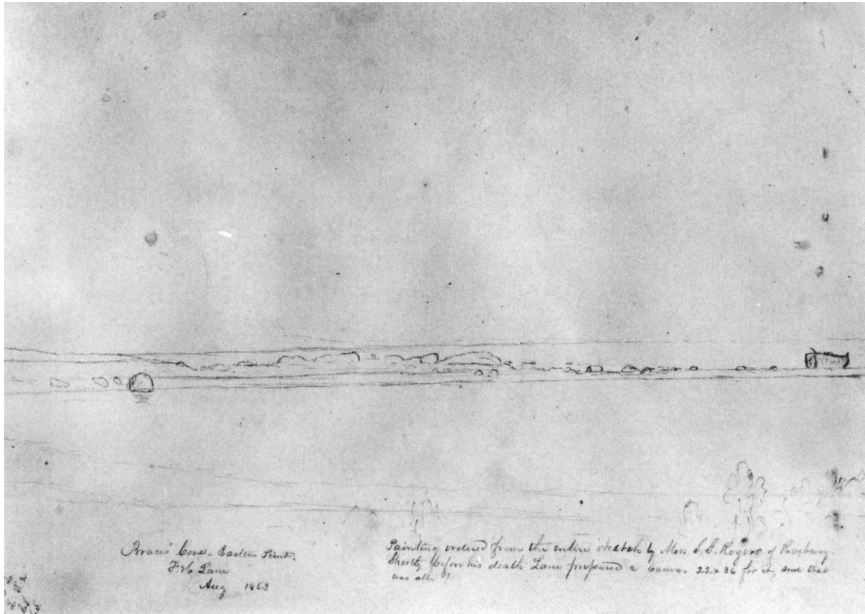 Brace's Cove - Eastern Point,
F. H. Lane
Aug 1863
Painting ordered from the entire sketch by Mrs. S. G. Rogers of Roxbury.
Shortly before his death Lane prepared a canvas 22 x 36 for it, and that
was all.